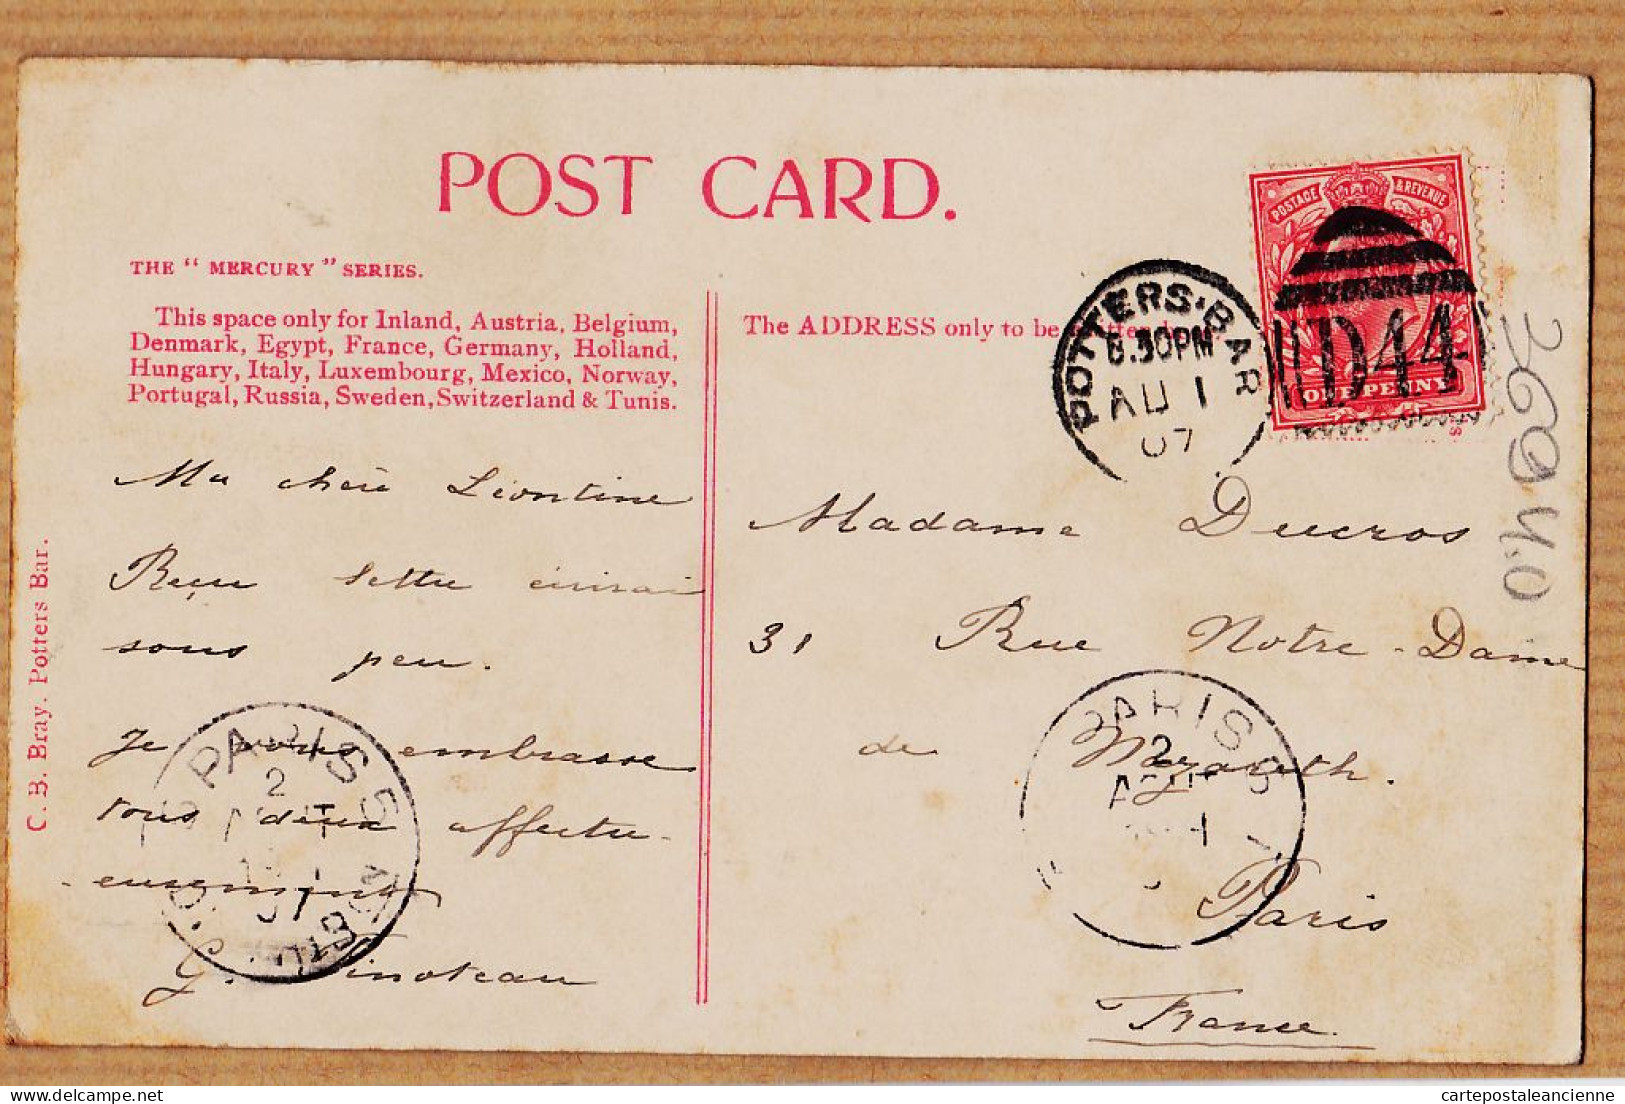 POST CARD.
THE "MERCURY" SERIES.
This space only for Inland, Austria, Belgium,
Denmark, Egypt, France, Germany, Holland,
Hungary, Italy, Luxembourg, Mexico, Norway,
Portugal, Russia, Sweden, Switzerland & Tunis.
The ADDRESS only to be
POSTAGE & REVENUE
D44
PENNY
POTTERS·BAR
PM
AU 1
07
Ma chère Léontine
Reçu lettre écrirai
sous peu.
Je vous embrasse
tous deux affectu-
eusement
G. Tinoteau
Madame Ducros
31 Rue Notre-Dame
de Nazareth.
Paris
France
PARIS 5
2
AOUT
PARIS 5
2
AOUT
C. B. Bray. Potters Bar.
cartepostaleancienne